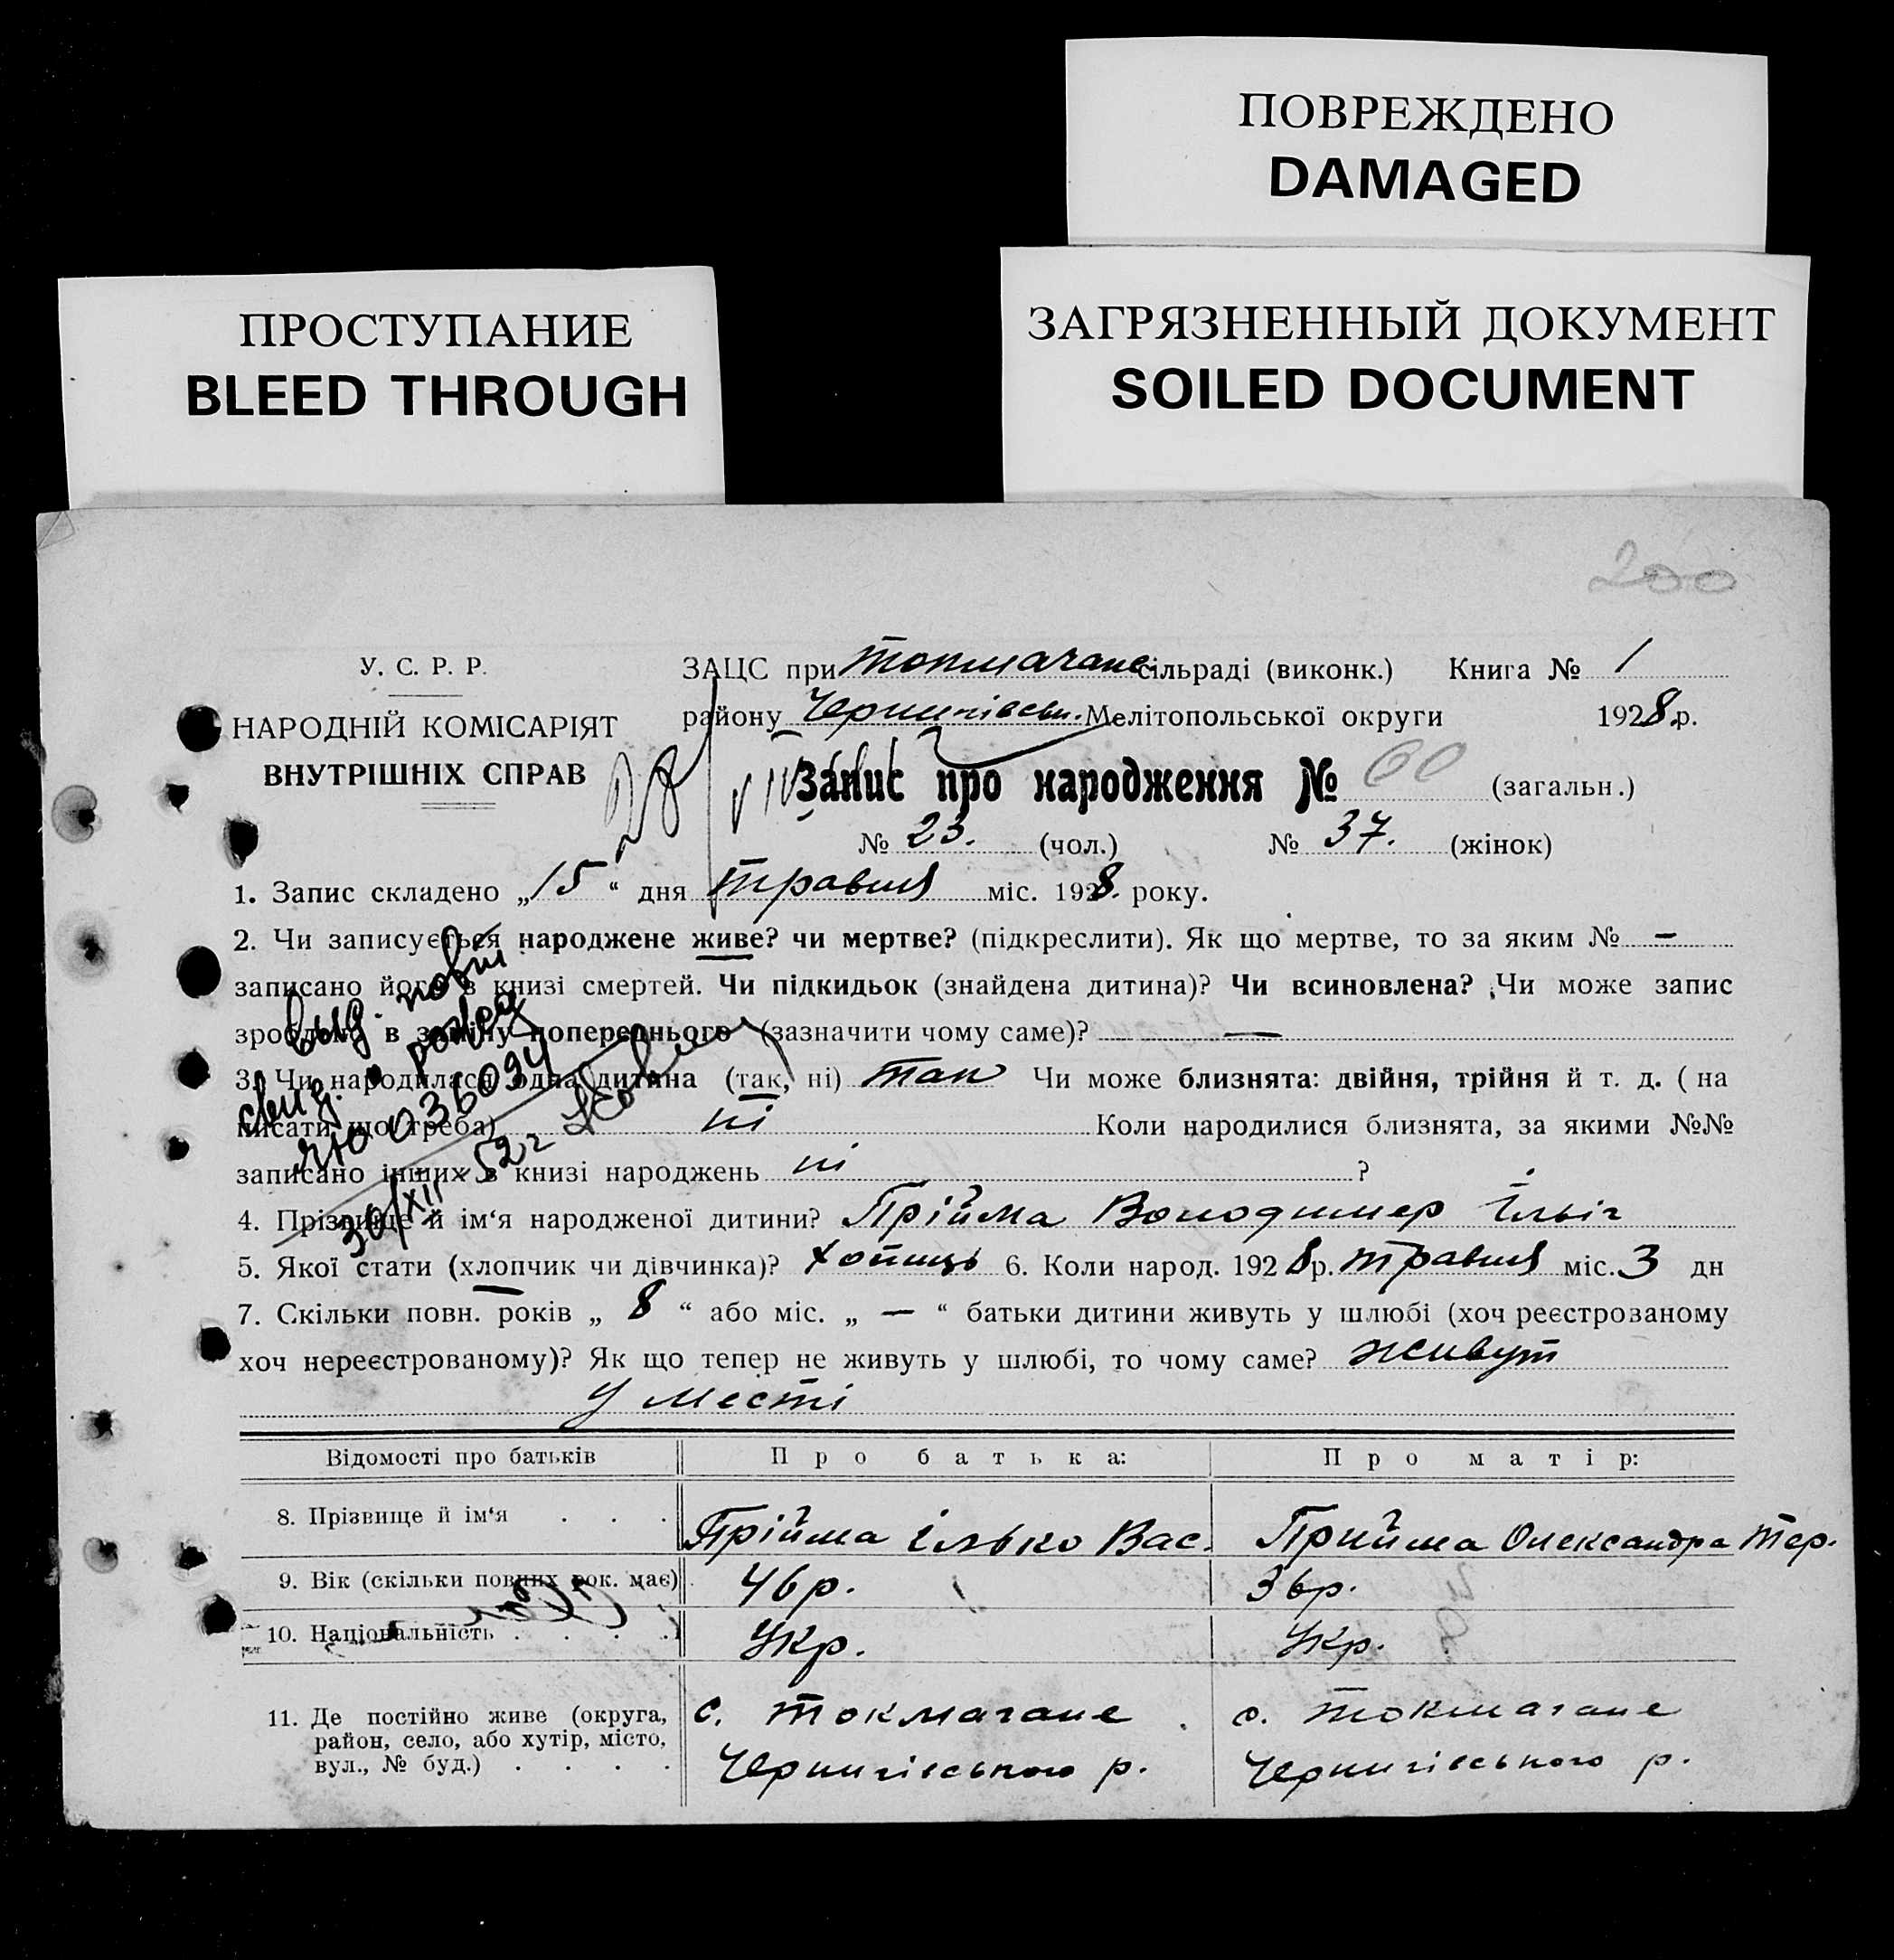 ПОВРЕЖДЕНО
DAMAGED
ПРОСТУПАНИЕ
BLEED THROUGH
ЗАГРЯЗНЕННЫЙ ДОКУМЕНТ
SOILED DOCUMENT
200
У. С. Р. Р.
НАРОДНІЙ КОМІСАРІЯТ
ВНУТРІШНІХ СПРАВ
ЗАЦС при Токмачансь сільраді (виконк.) Книга № 1
району Чернигівськ. Мелітопольської округи 1928 р.
Запис про народження № 60 (загальн.)
№ 23. (чол.) № 37. (жінок)
1. Запис складено „15“ дня травня міс. 1928. року.
2. Чи записується народжене живе? чи мертве? (підкреслити). Як що мертве, то за яким № —
записано його в книзі смертей. Чи підкидьок (знайдена дитина)? Чи всиновлена? Чи може запис
зроблено в заміну попереднього (зазначити чому саме)? —
3. Чи народилася одна дитина (так, ні) так Чи може близнята: двійня, трійня й т. д. (на
писати що треба) ні Коли народилися близнята, за якими №№
записано інших в книзі народжень ні ?
выд. повт.
свид. о рожд
ЯЮ 036034
30/XII 52 г
4. Прізвище й ім‘я народженої дитини? Прійма Володимер Ільіч
5. Якої стати (хлопчик чи дівчинка)? хопиць 6. Коли народ. 1928 р. травня міс. 3 дн
7. Скільки повн. років „ 8 “ або міс. „ — “ батьки дитини живуть у шлюбі (хоч реєстрованому
хоч нереєстрованому)? Як що тепер не живуть у шлюбі, то чому саме? живут
у месті
Відомості про батьків Про батька: Про матір:
8. Прізвище й ім‘я . . . Прійма Ілько Вас. Прийма Олександра Тер.
9. Вік (скільки повних рок. має) 46 р. 36 р.
10. Національність . . . . Укр. Укр.
11. Де постійно живе (округа, с. Токмачане с. Токмачане
район, село, або хутір, місто,
вул., № буд.) . . . . Чернигівського р. Чернигівського р.